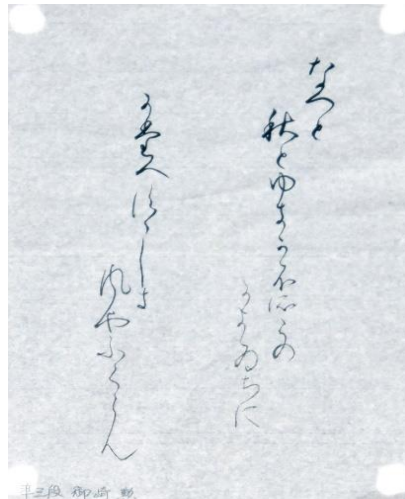 なつと
秋とゆきかふそらの
かよひちは
かたへすゝしき
風やふくらん
三段